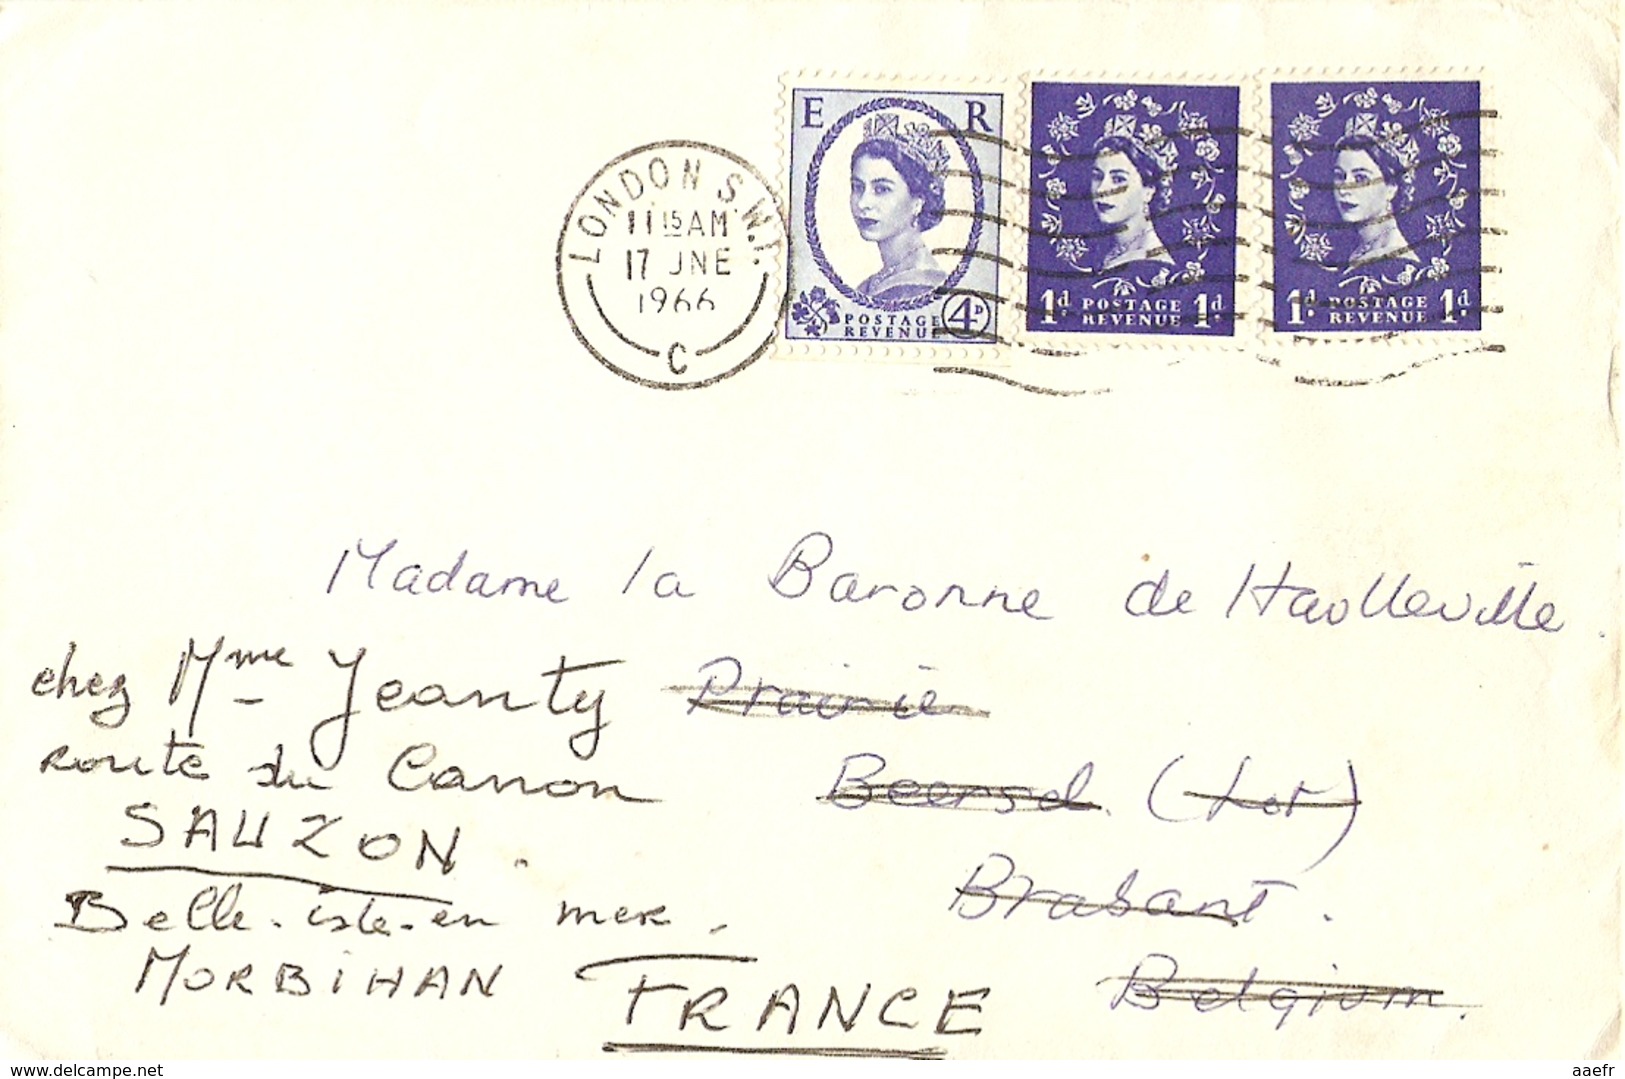 LONDON S.W.1.
11 15 AM
17 JNE
1966
C
E R
POSTAGE
REVENUE
4D
1d. POSTAGE 1d.
REVENUE
1d. POSTAGE 1d.
REVENUE
Madame la Baronne de Haulleville.
Prairie
Beersel. (Lot)
Brabant.
Belgium.
chez Mme Jeanty
Route du Canon
SAUZON.
Belle-isle-en mer.
MORBIHAN
FRANCE
www.delcampe.net
aaefr